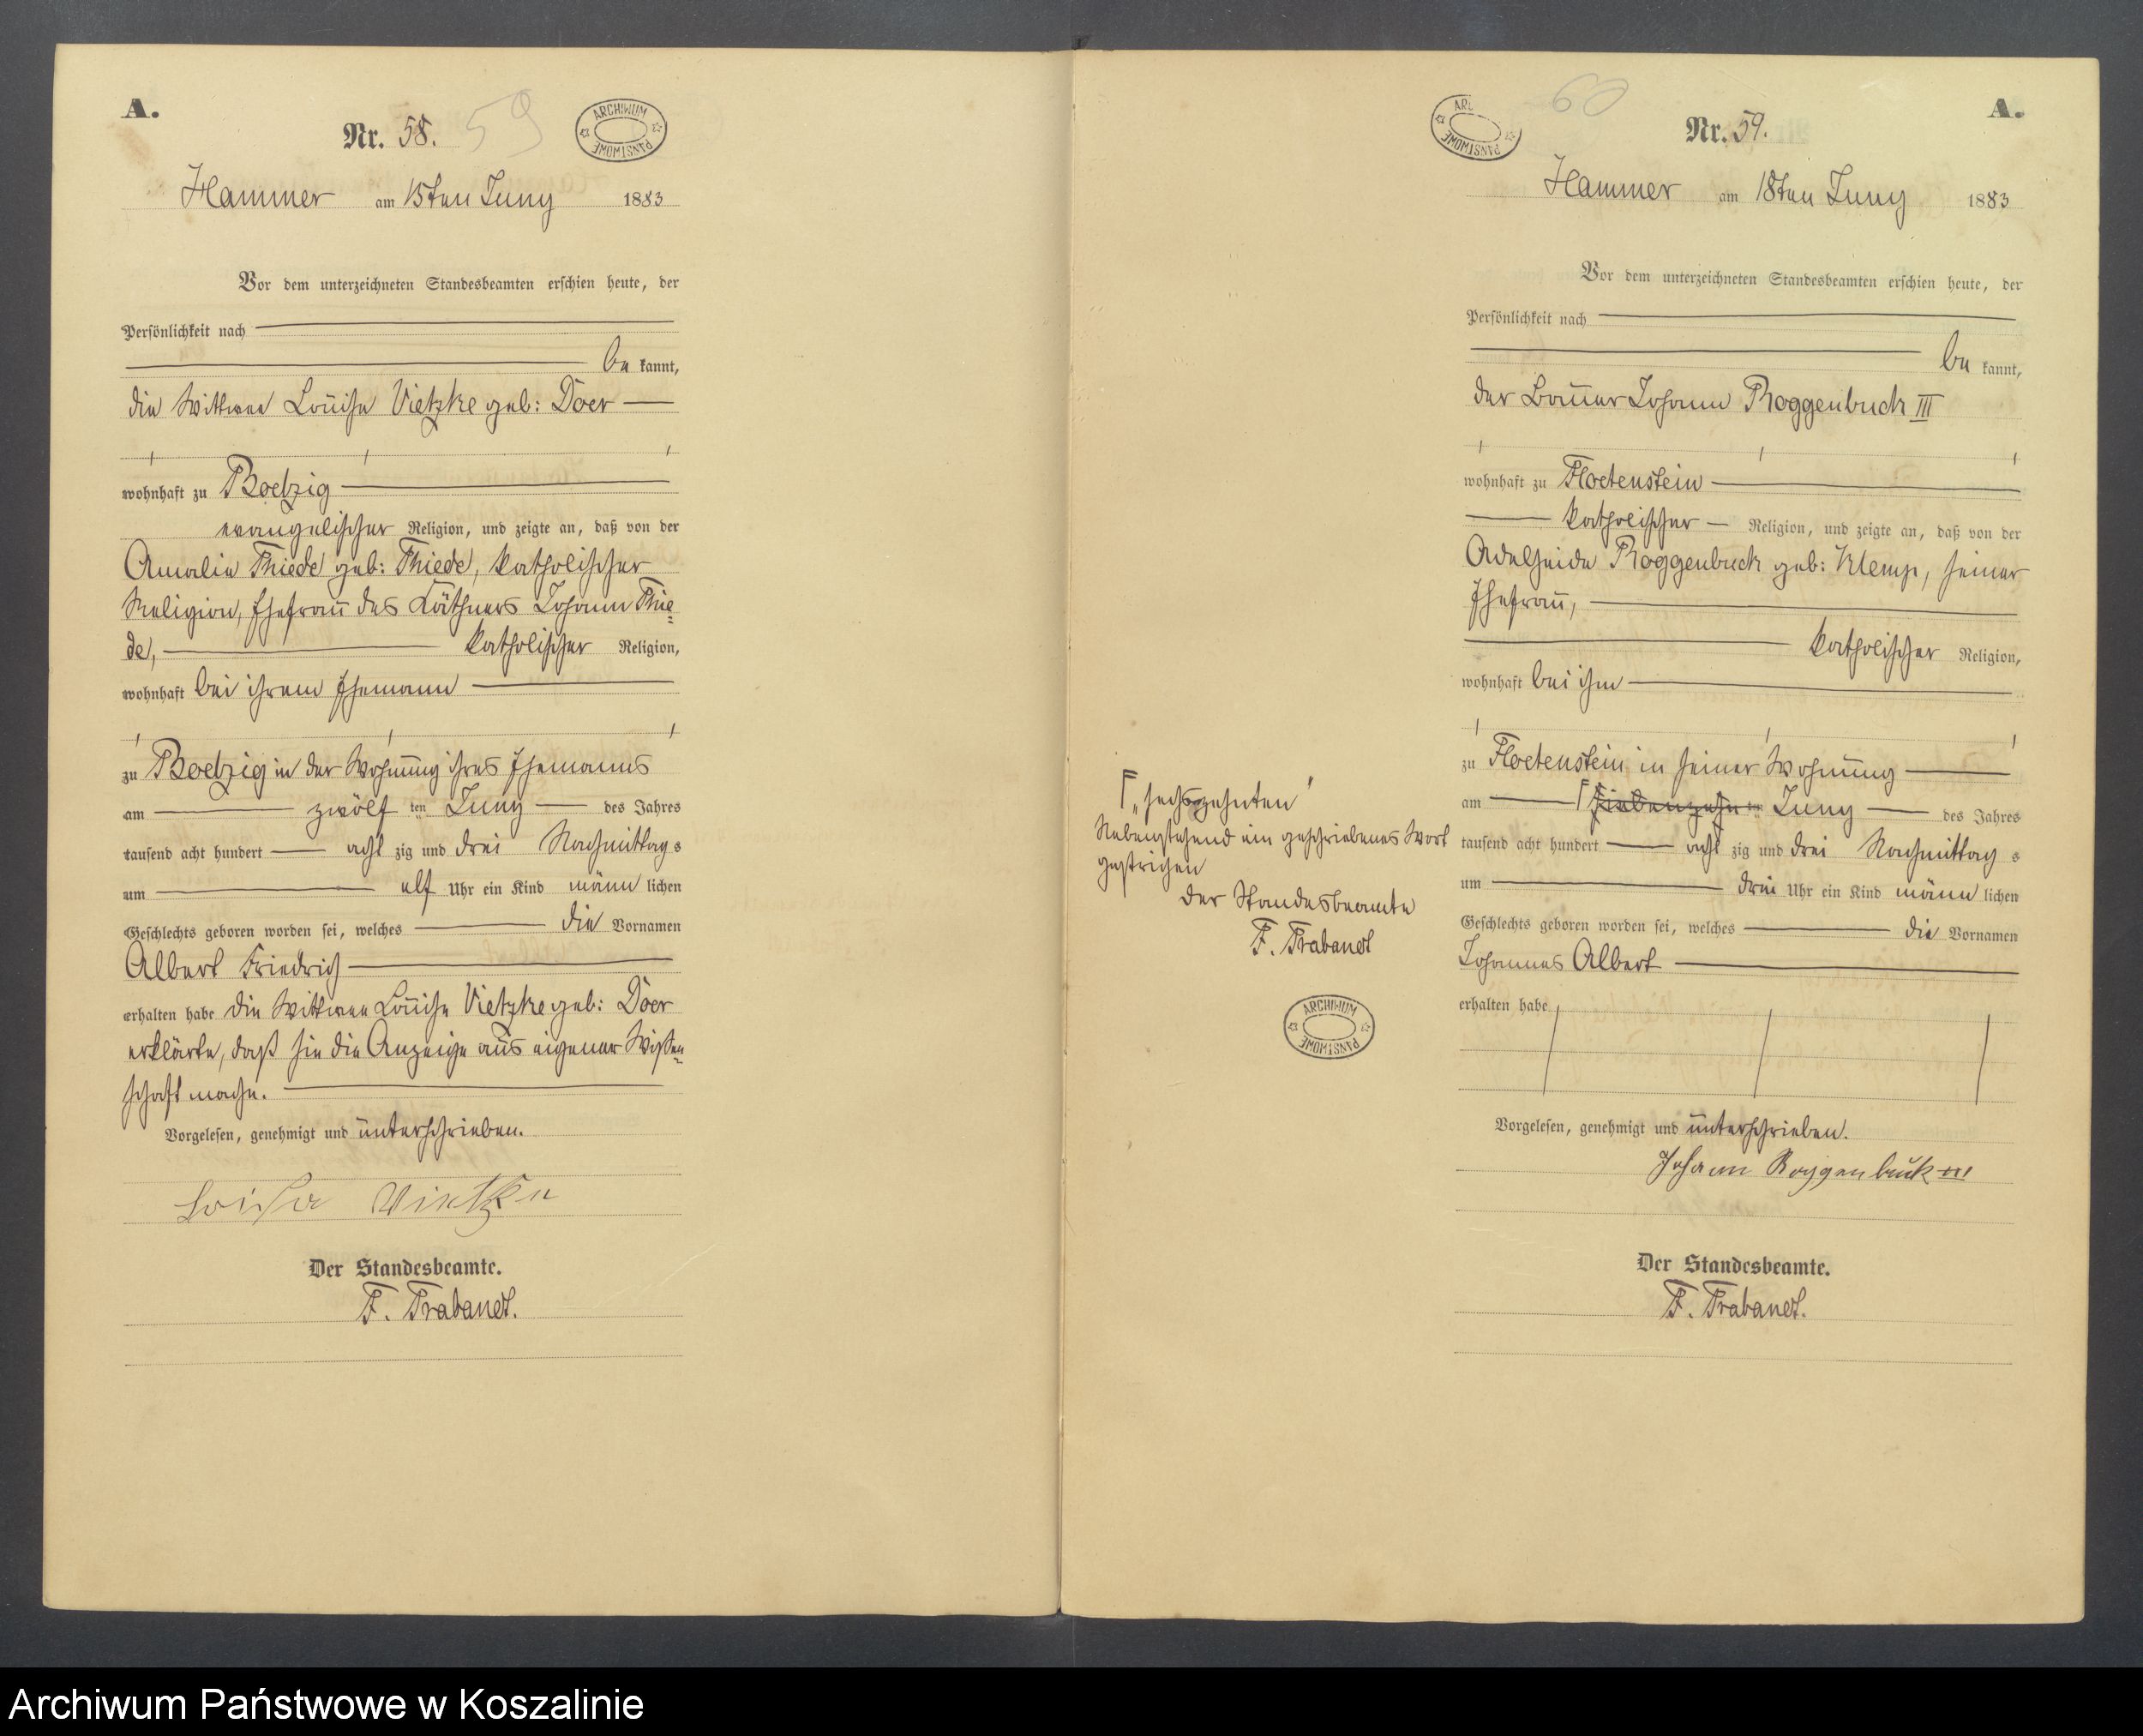 A.
Nr. 58.
59
ARCHIWUM PAŃSTWOWE
Hammer am 15ten Juny 1883
Vor dem unterzeichneten Standesbeamten erschien heute, der
Persönlichkeit nach
be kannt,
die Wittwee Louise Vietzke geb: Doer
wohnhaft zu Roetzig
evangelischer Religion, und zeigte an, daß von der
Amalie Thiede geb: Thiede, katholischer
Religion, Ehefrau des Käthners Johann Thie=
de, katholischer Religion,
wohnhaft bei ihrem Ehemann
zu Roetzig in der Wohnung ihres Ehemanns
am zwölf ten Juny des Jahres
tausend acht hundert acht zig und drei Nachmittags
um elf Uhr ein Kind männ lichen
Geschlechts geboren worden sei, welches die Vornamen
Albert Friedrich
erhalten habe die Wittwee Louise Vietzke geb: Doer
erklärte, daß sie die Anzeige aus eigener Wißen=
schaft mache.
Vorgelesen, genehmigt und unterschrieben.
Loise Vietzke
Der Standesbeamte.
F. Trabandt.
A.
Nr. 59.
60
ARC PAŃSTWOWE
Hammer am 18ten Juny 1883
Vor dem unterzeichneten Standesbeamten erschien heute, der
Persönlichkeit nach
be kannt,
der Bauer Johann Roggenbuck III
wohnhaft zu Floetenstein
katholischer Religion, und zeigte an, daß von der
Adelheide Roggenbuck geb: Klemp, seiner
Ehefrau,
katholischer Religion,
wohnhaft bei ihm
zu Floetenstein in seiner Wohnung
am siebenzehn ten Juny des Jahres
tausend acht hundert acht zig und drei Nachmittag s
um drei Uhr ein Kind männ lichen
Geschlechts geboren worden sei, welches die Vornamen
Johannes Albert
erhalten habe
Vorgelesen, genehmigt und unterschrieben.
Johann Roggenbuck III
Der Standesbeamte.
F. Trabandt.
„sechszehnten"
Nebenstehend ein geschriebenes Wort
gestrichen
Der Standesbeamte
F. Trabandt
ARCHIWUM PAŃSTWOWE
Archiwum Państwowe w Koszalinie